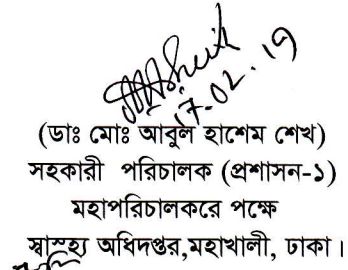 17.02.19
(ডাঃ মোঃ আবুল হাশেম শেখ)
সহকারী পরিচালক (প্রশাসন-১)
মহাপরিচালকরে পক্ষে
স্বাস্হ্য অধিদপ্তর,মহাখালী, ঢাকা।